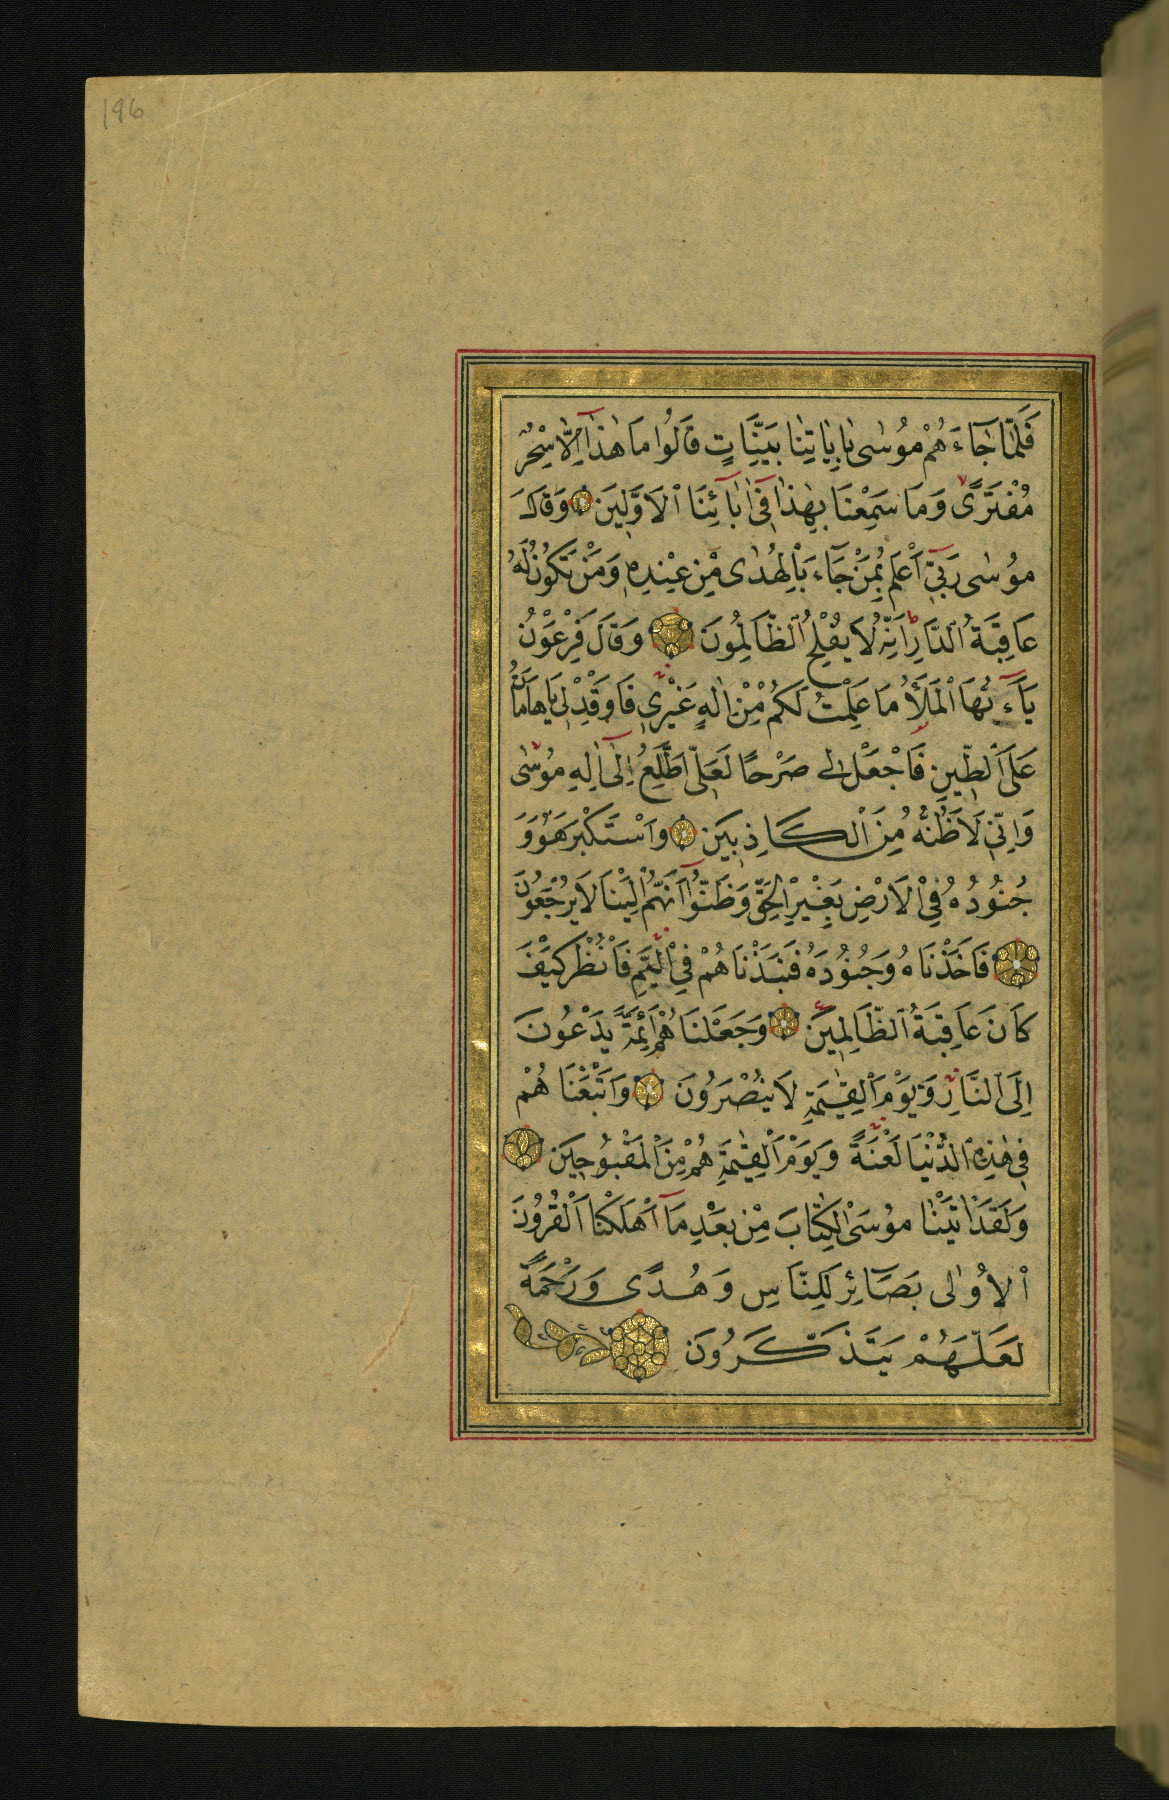 196
فَلَمَّا جَٓاءَهُمْ مُوسٰى بِاٰيَاتِنَا بَيِّنَاتٍ قَالُوا مَا هٰذَٓا اِلَّا سِحْرٌ
مُفْتَرًى وَمَا سَمِعْنَا بِهٰذَا فٖٓى اٰبَٓائِنَا الْاَوَّلٖينَ وَقَالَ
مُوسٰى رَبّٖٓى اَعْلَمُ بِمَنْ جَٓاءَ بِالْهُدٰى مِنْ عِنْدِهٖ وَمَنْ تَكُونُ لَهُ
عَاقِبَةُ الدَّارِ اِنَّهُ لَا يُفْلِحُ الظَّالِمُونَ وَقَالَ فِرْعَوْنُ
يَٓا اَيُّهَا الْمَلَأُ مَا عَلِمْتُ لَكُمْ مِنْ اِلٰهٍ غَيْرٖى فَاَوْقِدْ لٖى يَا هَامَانُ
عَلَى الطّٖينِ فَاجْعَلْ لٖى صَرْحًا لَعَلّٖٓى اَطَّلِعُ اِلٰٓى اِلٰهِ مُوسٰى
وَاِنّٖى لَاَظُنُّهُ مِنَ الْكَاذِبٖينَ وَاسْتَكْبَرَ هُوَ وَ
جُنُودُهُ فِى الْاَرْضِ بِغَيْرِ الْحَقِّ وَظَنُّٓوا اَنَّهُمْ اِلَيْنَا لَا يُرْجَعُونَ
فَاَخَذْنَاهُ وَجُنُودَهُ فَنَبَذْنَاهُمْ فِى الْيَمِّ فَانْظُرْ كَيْفَ
كَانَ عَاقِبَةُ الظَّالِمٖينَ وَجَعَلْنَاهُمْ اَئِمَّةً يَدْعُونَ
اِلَى النَّارِ وَيَوْمَ الْقِيٰمَةِ لَا يُنْصَرُونَ وَاَتْبَعْنَاهُمْ
فٖى هٰذِهِ الدُّنْيَا لَعْنَةً وَيَوْمَ الْقِيٰمَةِ هُمْ مِنَ الْمَقْبُوحٖينَ
وَلَقَدْ اٰتَيْنَا مُوسَى الْكِتَابَ مِنْ بَعْدِ مَٓا اَهْلَكْنَا الْقُرُونَ
الْاُولٰى بَصَٓائِرَ لِلنَّاسِ وَهُدًى وَرَحْمَةً
لَعَلَّهُمْ يَتَذَكَّرُونَ